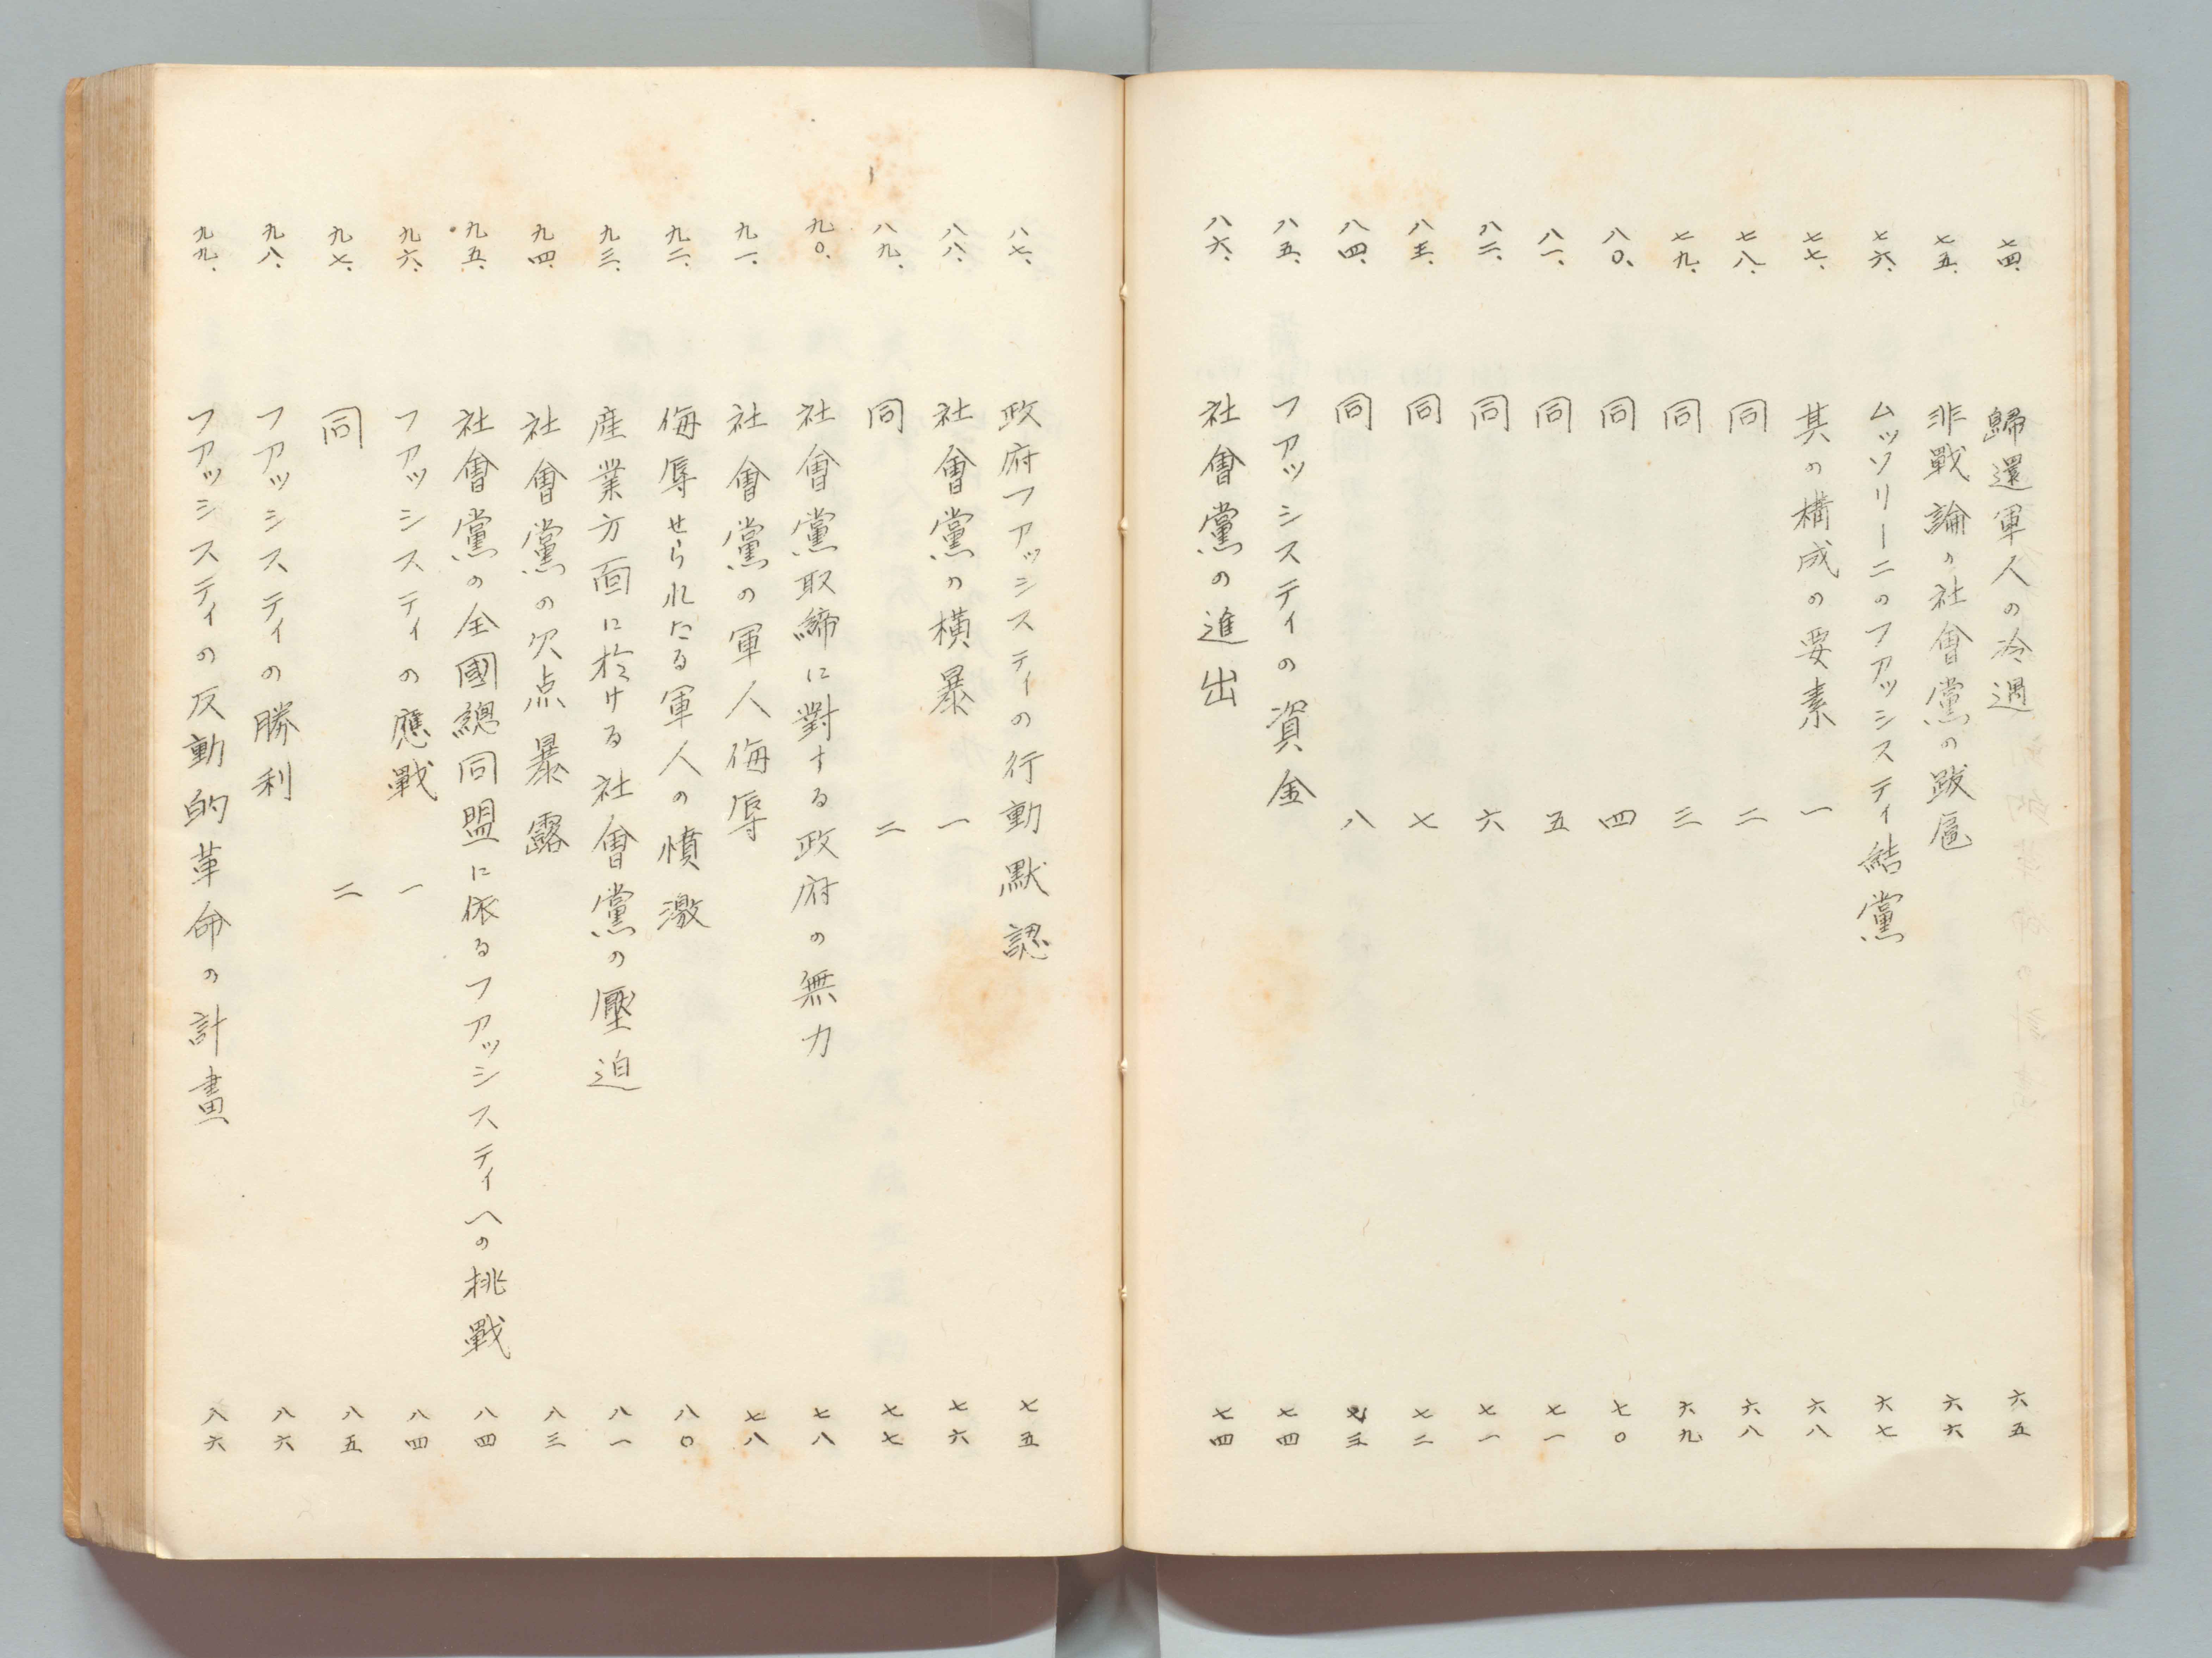 七四、 歸還軍人の冷遇 六五
七五、 非戰論の社會黨の跋扈 六六
七六、 ムッソリーニのファッシスティ結黨 六七
七七、 其の構成の要素 一 六八
七八、 同 二 六八
七九、 同 三 六九
八〇、 同 四 七〇
八一、 同 五 七一
八二、 同 六 七一
八三、 同 七 七二
八四、 同 八 七三
八五、 ファッシスティの資金 七四
八六、 社會黨の進出 七四
八七、 政府ファッシスティの行動默認 七五
八八、 社會黨の横暴 一 七六
八九、 同 二 七七
九〇、 社會黨取締に對する政府の無力 七八
九一、 社會黨の軍人侮辱 七八
九二、 侮辱せられたる軍人の憤激 八〇
九三、 産業方面に於ける社會黨の壓迫 八一
九四、 社會黨の欠点暴露 八三
九五、 社會黨の全國總同盟に依るファッシスティへの挑戰 八四
九六、 ファッシスティの應戰 一 八四
九七、 同 二 八五
九八、 ファッシスティの勝利 八六
九九、 ファッシスティの反動的革命の計畫 八六